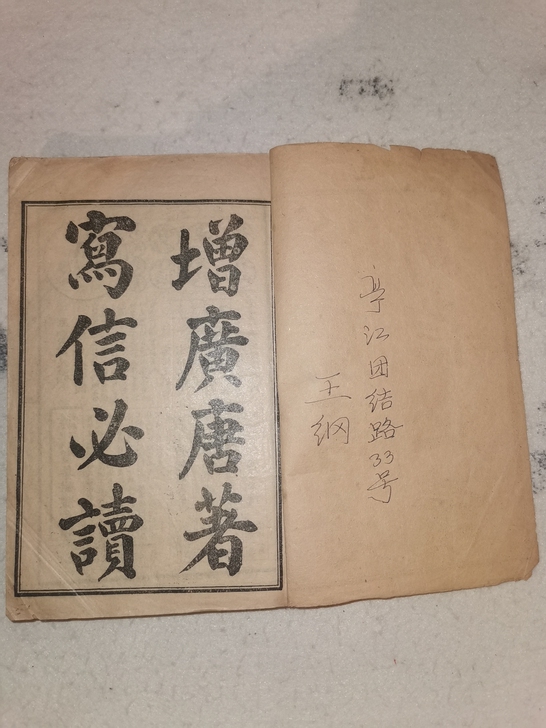 亭江团结路33号
王纲
增廣唐著
寫信必讀